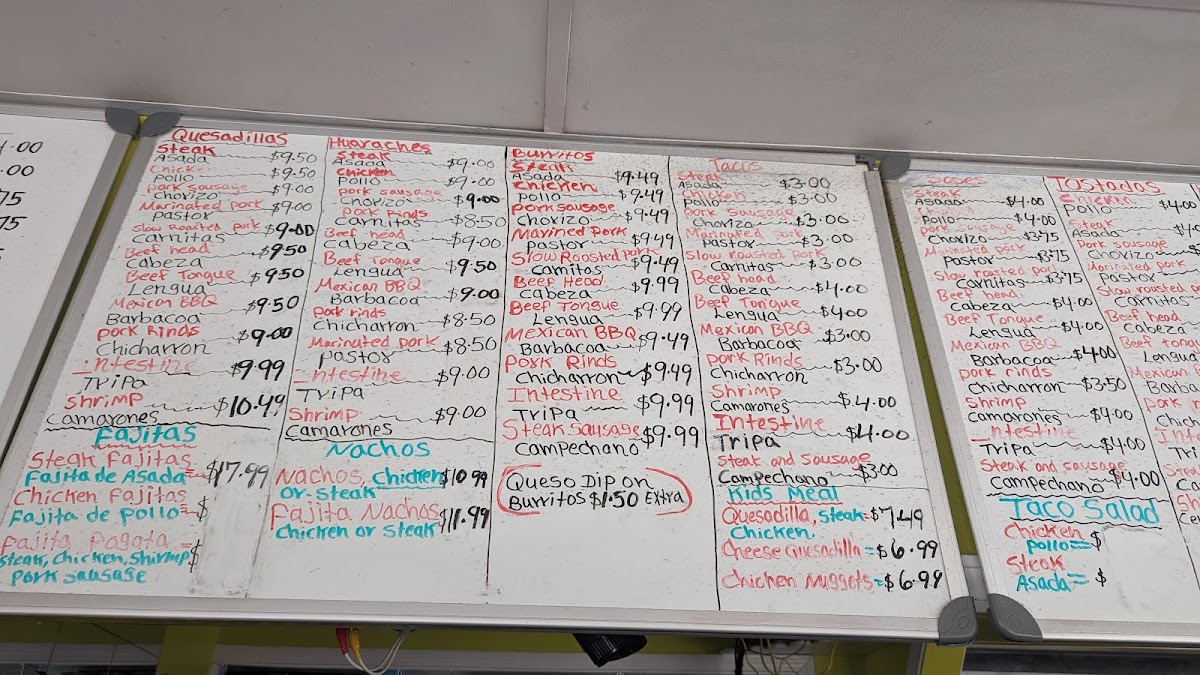 .00
.00
75
75
Quesadillas
Steak
Asada $9.50
Chicken
Pollo $9.50
pork sausage
Chorizo $9.00
Marinated pork
Pastor $9.00
Slow Roasted pork
Carnitas $9.00
Beef head
Cabeza $9.50
Beef Tongue
Lengua $9.50
Mexican BBQ
Barbacoa $9.50
pork Rinds
Chicharron $9.00
intestine
Tripa $9.99
Shrimp
Camarones $10.49
Fajitas
Steak Fajitas
Fajita de Asada = $17.99
Chicken Fajitas
Fajita de pollo = $
Fajita Pogata = $
Steak, Chicken, Shirmp
Pork sausage
Huaraches
Steak
Asada $9.00
Chicken
Pollo $9.00
pork sausage
Chorizo $9.00
pork Rinds
Carnitas $8.50
Beef head
Cabeza $9.00
Beef Tongue
Lengua $9.50
Mexican BBQ
Barbacoa $9.00
pork rinds
Chicharron $8.50
Marinated pork
Pastor $8.50
intestine
Tripa $9.00
Shrimp
Camarones $9.00
Nachos
Nachos, Chicken $10.99
or steak
Fajita Nachos
Chicken or Steak $11.99
Burritos
Steak
Asada $9.49
Chicken
Pollo $9.49
Pork sausage
Chorizo $9.49
Marined pork
Pastor $9.49
Slow Roosted pork
Carnitas $9.49
Beef Head
Cabeza $9.99
Beef Tongue
Lengua $9.99
Mexican BBQ
Barbacoa $9.49
Pork Rinds
Chicharron $9.49
Intestine
Tripa $9.99
Steak sausage
Campechano $9.99
Queso Dip on
Burritos $1.50 Extra
Tacos
Steak
Asada $3.00
Chicken
Pollo $3.00
pork sausage
Chorizo $3.00
Marinated pork
Pastor $3.00
Slow roasted pork
Carnitas $3.00
Beef head
Cabeza $4.00
Beef Tongue
Lengua $4.00
Mexican BBQ
Barbacoa $3.00
pork Rinds
Chicharron $3.00
Shrimp
Camarones $4.00
Intestine
Tripa $4.00
Steak and sausage
Campechano $3.00
Kids Meal
Quesadilla, steak = $7.49
Chicken.
Cheese Quesadilla = $6.99
Chicken Nuggets = $6.99
Sopes
Steak
Asada $4.00
Pollo $4.00
pork sausage
Chorizo $3.75
Marinated pork
Pastor $3.75
Slow roasted pork
Carnitas $3.75
Beef head
Cabeza $4.00
Beef Tongue
Lengua $4.00
Mexican BBQ
Barbacoa $4.00
pork rinds
Chicharron $3.50
Shrimp
Camarones $4.00
intestine
Tripa $4.00
Steak and sausage
Campechano $4.00
Taco Salad
Chicken
Pollo = $
Steak
Asada = $
Tostados
Chicken
Pollo $4.00
Steak
Asada
Pork sausage
Chorizo
Marinated pork
Pastor
Slow roasted
Carnitas
Beef head
Cabeza
Beef tongu
Lengua
Mexican
Barb
pork
Chich
Int
Tri